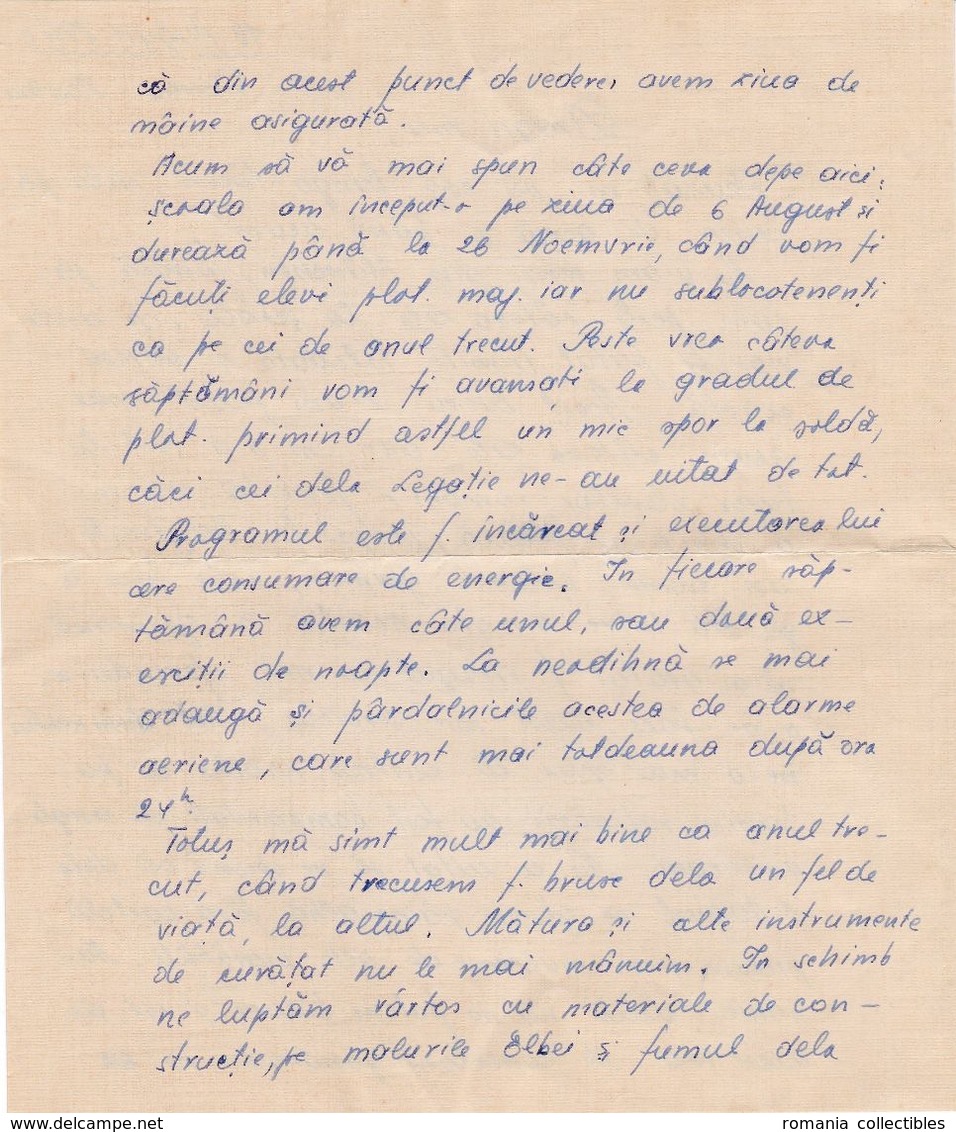 că din acest punct de vedere, avem ziua de
mâine asigurată.
Acum să vă mai spun câte ceva depe aici.
Școala am început-o pe ziua de 6 August și
durează până la 26 Noemvrie, când vom fi
făcuți elevi plot. maj. iar nu sublocotenenți
ca pe cei de anul trecut. Peste vreo câteva
săptămâni vom fi avansați la gradul de
plot. primind astfel un mic spor la soldă,
căci cei dela Legație ne-au uitat de tot.
Programul este f. încărcat și executarea lui
cere consumare de energie. In fiecare săp-
tămână avem câte unul, sau două ex-
erciții de noapte. La neodihnă se mai
adaugă și pârdalnicile acestea de alarme
aeriene, care sunt mai totdeauna după ora
24h.
Totuș mă simt mult mai bine ca anul tre-
cut, când trecusem f. brusc dela un fel de
viață, la altul. Mătura și alte instrumente
de curățat nu le mai mânuim. In schimb
ne luptăm vârtos cu materiale de con-
strucție, pe malurile Elbei și fumul dela
romania collectibles